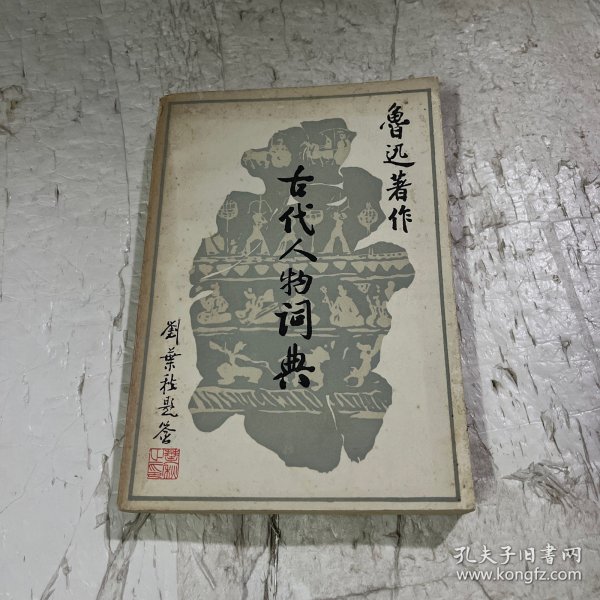 魯迅著作
古代人物词典
劉葉秋題签
孔夫子旧书网
www.kongfz.com